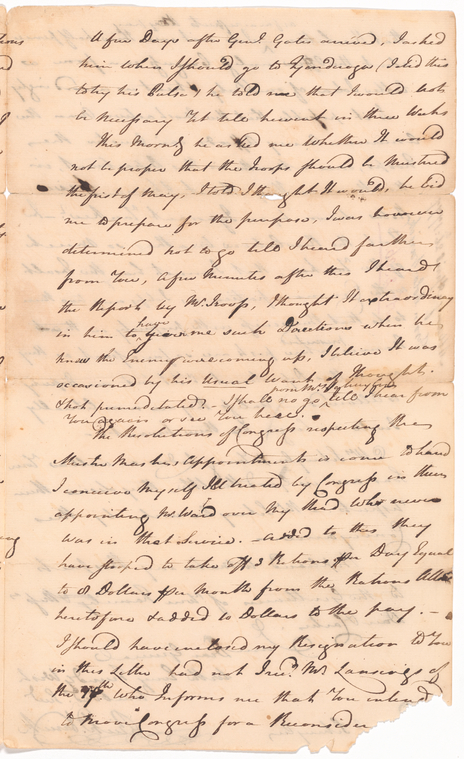 A few Days after Genl. Gates arrived, I asked
him when I should go to Tyonderoga (I did this
to try his Pulse) he told me that I would not
be necessary Yet till he went in three Weeks
This Morng he asked me whether It would
not be proper that the troops should be Mustred
the first of May, I told I thought It would, he bid
me to prepare for the purpose, I was however
determined not to go till I heard farther
from You, a few Minutes after this I heard
the Report by Mr Troop, I thought It extraordinary
in him to have me such Directions when he
knew the Enemy were coming up, I believe It was
occasioned by his Usual Want of thought.
I shall no go till I hear from
You again or see You here.
The Resolutions of Congress respecting the
Muster Masters Appointments is come to hand
I conceive myself Ill treated by Congress in their
appointing Mr. Ward over my Head Who never
was in that Service. — added to this they
have stooped to take off 2 Rations per Day Equal
to 8 Dollars per Month from the Rations
heretofore & added 10 Dollars to the pay. —
I should have inclosed my Resignation to You
in this Letter had not Mr Lansings of
the Who Informs me that You intend
to move Congress for a Reconsider